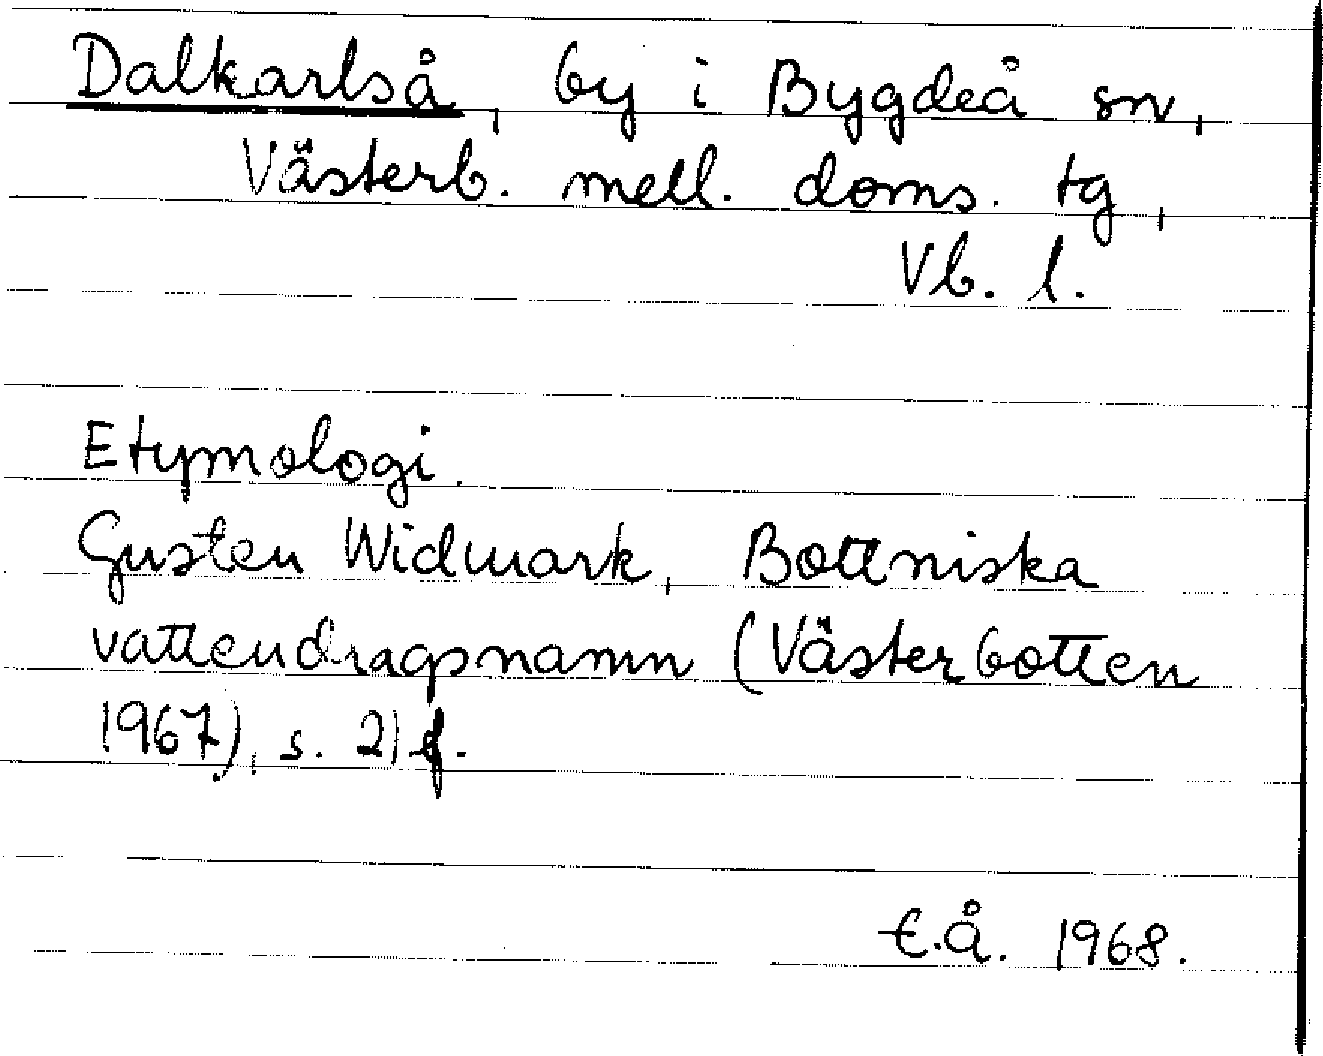 Dalkarlså, by i Bygdeå sn,
Västerb. mell. doms. tg,
Vb. l.
Etymologi.
Gusten Widmark, Bottniska
vattendragsnamn (Västerbotten
1967), s. 21 f.
E.Å. 1968.